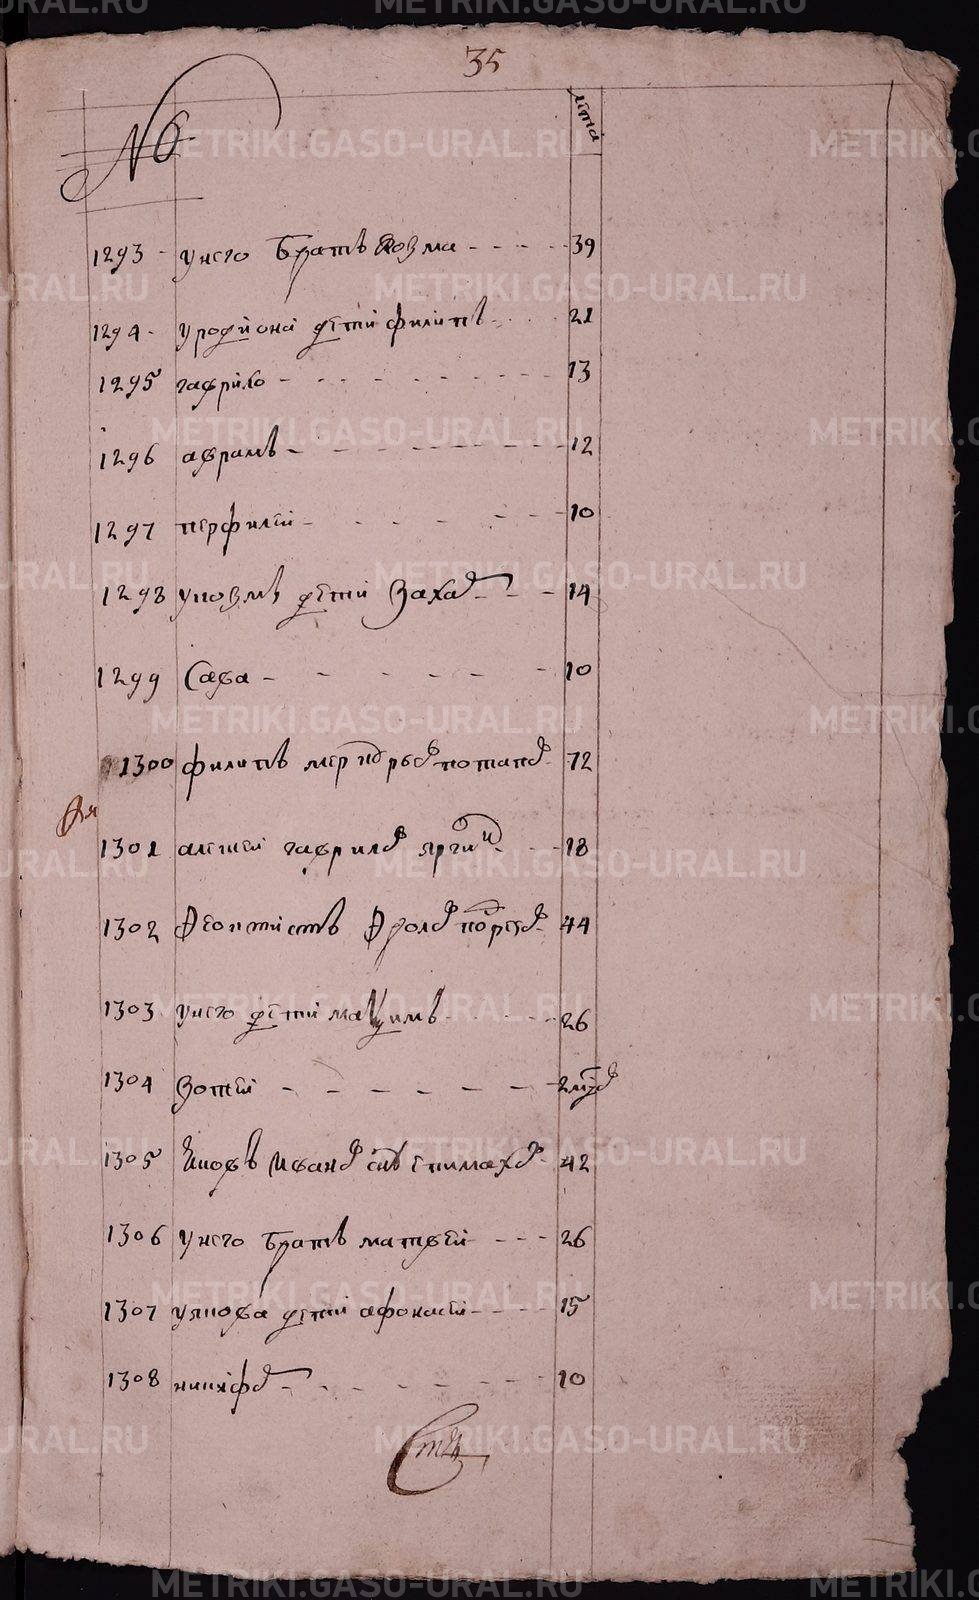 35
№ лѣта
1293 - у него братъ козма - - - - 39
1294 - у родиона дети филипъ - - 21
1295 гаврило - - - - - - - 13
1296 аврамъ - - - - - - - 12
1297 перфилеи - - - - - - 10
1298 у козмы дети Захар - - - 14
1299 Сава - - - - - - 10
1300 филипъ потапов 72
1301 алексеи гаврилов - - 18
1302 Ѳеоктистъ Ѳролов 44
1303 у него дети маѯимъ - - - - 26
1304 Зотеи - - - - - - 2
1305 Яковъ Иванов снъ епимахов 42
1306 у него братъ матвеи - - - 26
1307 у якова дети афонасеи - - - - 15
1308 никифор - - - - - - 10
METRIKI.GASO-URAL.RU